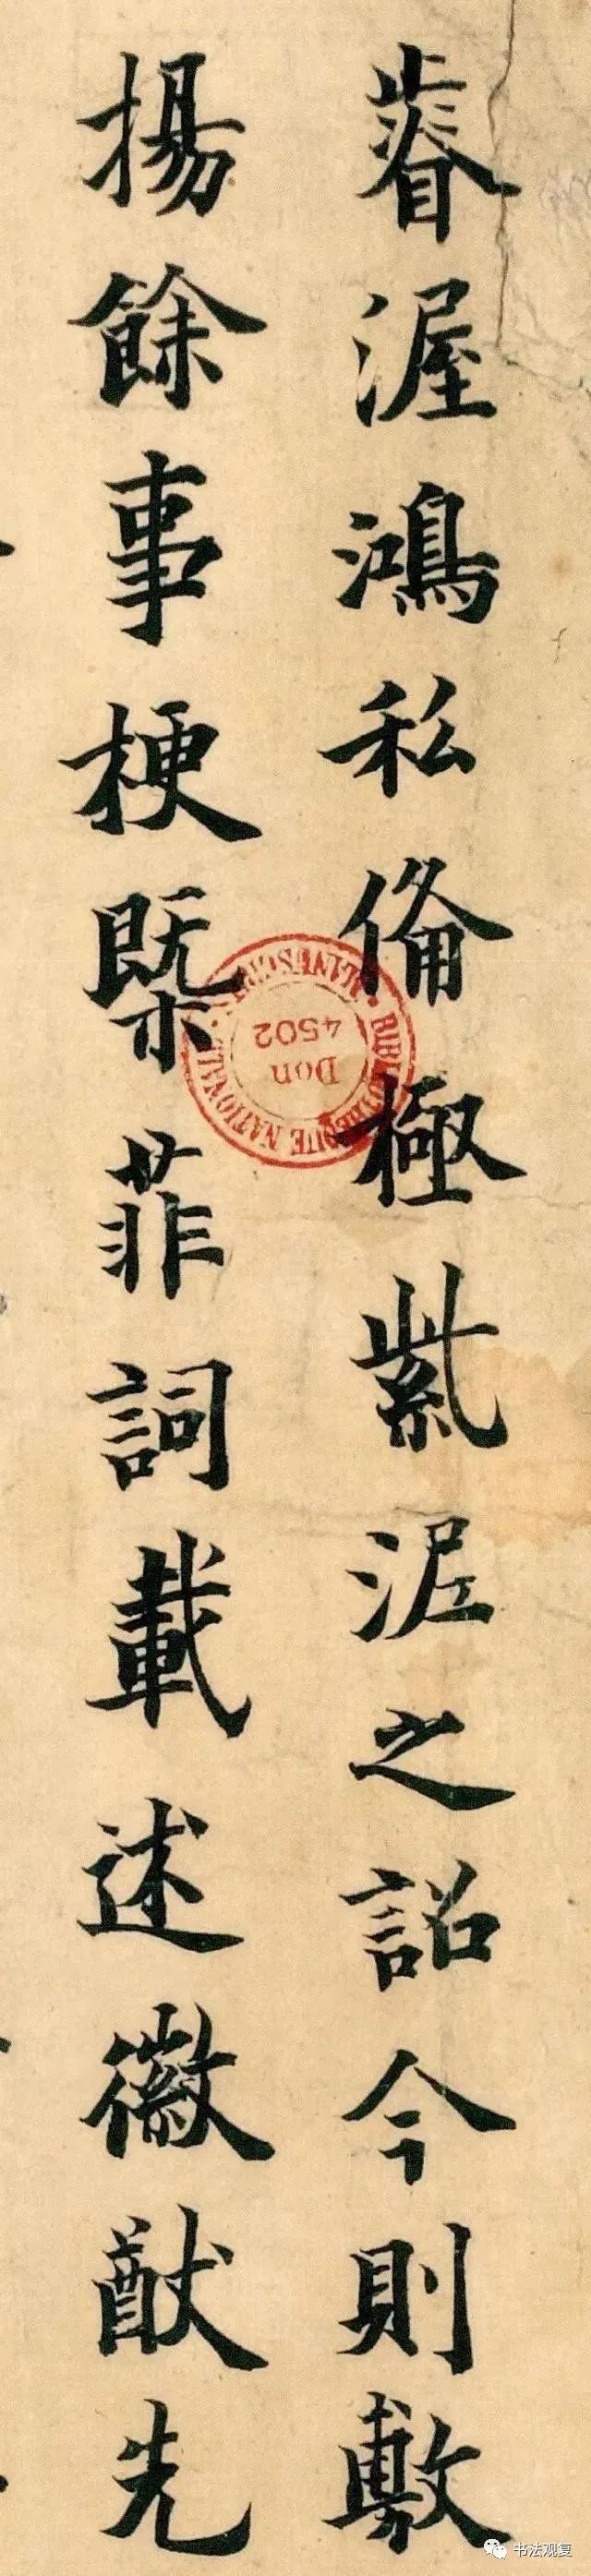 眷渥鴻私俻極紫泥之詔今則敷
揚餘事梗槩菲詞載述徽猷先
BIBLIOTHEQUE NATIONALE MANUSCRITS
Don
4502
书法观复